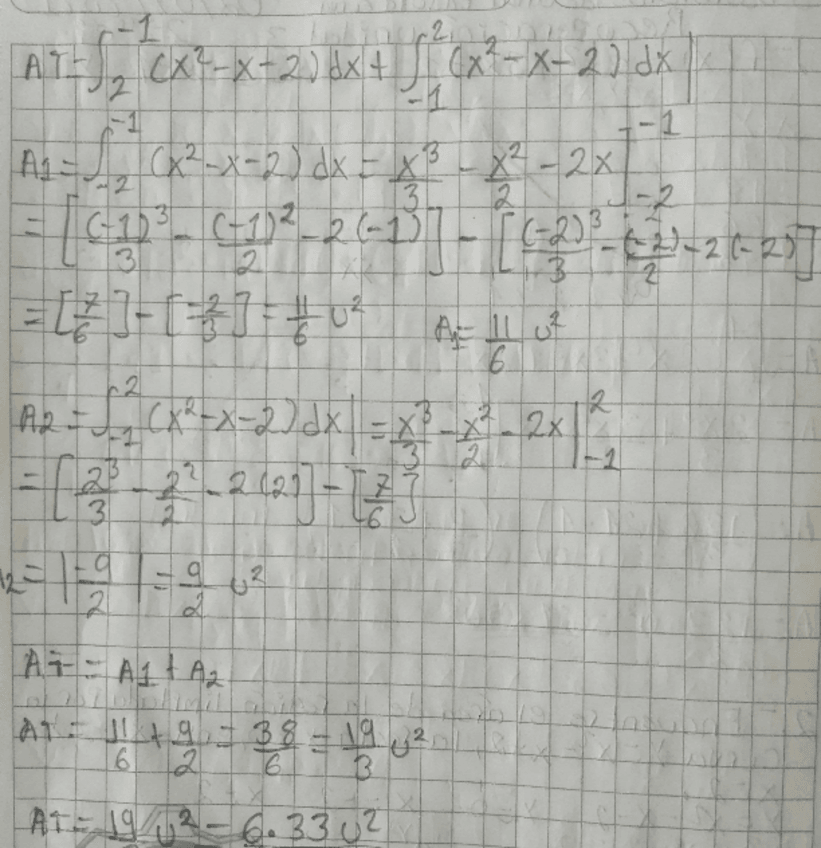 AT = ∫₂⁻¹ (x²-x-2) dx + ∫₋₁² (x²-x-2) dx|
A1 = ∫₋₂⁻¹ (x²-x-2) dx = x³/3 - x²/2 - 2x]₋₂⁻¹
= [(-1)³/3 - (-1)²/2 - 2(-1)] - [(-2)³/3 - (-2)²/2 - 2(-2)]
= [7/6] - [-2/3] = 11/6 u² A1 = 11/6 u²
A2 = ∫₋₁² (x²-x-2) dx| = x³/3 - x²/2 - 2x|₋₁²
= [2³/3 - 2²/2 - 2(2)] - [7/6]
A2 = |-9/2| = 9/2 u²
AT = A1 + A2
AT = 11/6 + 9/2 = 38/6 = 19/3 u²
AT = 19 u² = 6.33 u²